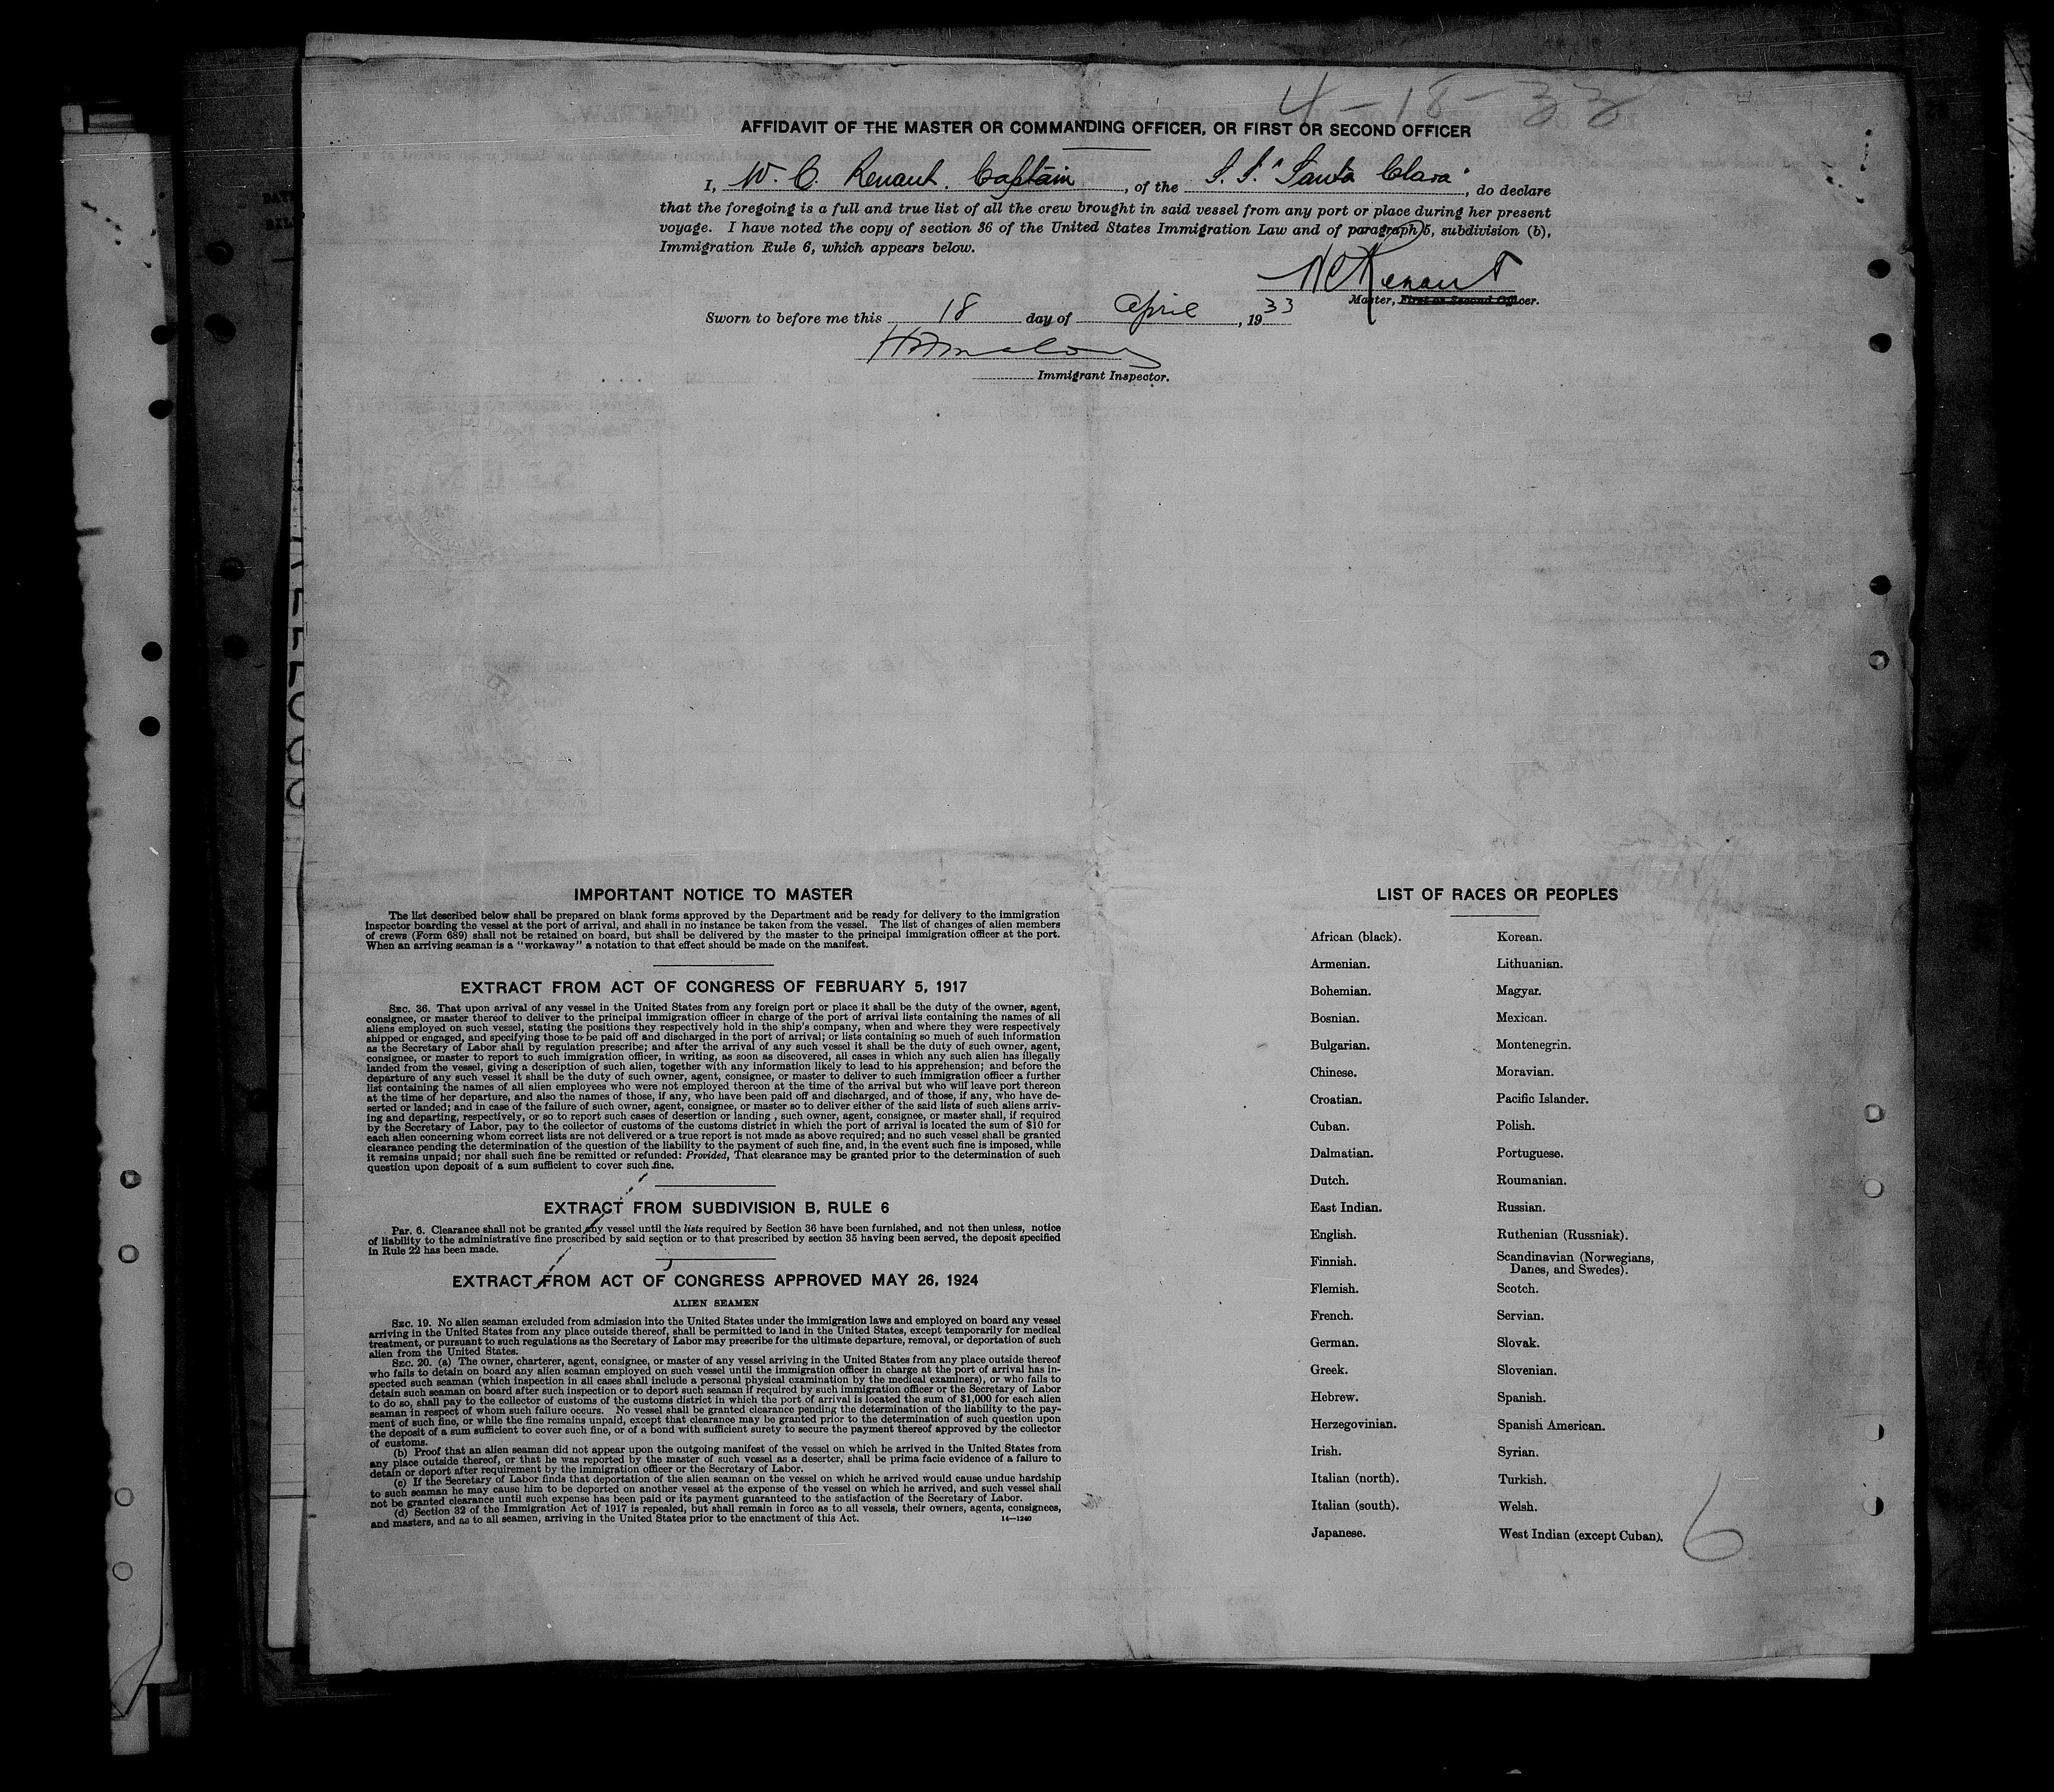 4-18-33
AFFIDAVIT OF THE MASTER OR COMMANDING OFFICER, OR FIRST OR SECOND OFFICER
I, W. C. Renaut. Captain, of the S. S. "Santa Clara", do declare
that the foregoing is a full and true list of all the crew brought in said vessel from any port or place during her present
voyage. I have noted the copy of section 36 of the United States Immigration Law and of paragraph 5, subdivision (b),
Immigration Rule 6, which appears below.
WC Renaut
Master, First or Second Officer.
Sworn to before me this 18 day of April, 1933
Immigrant Inspector.
IMPORTANT NOTICE TO MASTER
The list described below shall be prepared on blank forms approved by the Department and be ready for delivery to the immigration
inspector boarding the vessel at the port of arrival, and shall in no instance be taken from the vessel. The list of changes of alien members
of crews (Form 689) shall not be retained on board, but shall be delivered by the master to the principal immigration officer at the port.
When an arriving seaman is a "workaway" a notation to that effect should be made on the manifest.
EXTRACT FROM ACT OF CONGRESS OF FEBRUARY 5, 1917
SEC. 36. That upon arrival of any vessel in the United States from any foreign port or place it shall be the duty of the owner, agent,
consignee, or master thereof to deliver to the principal immigration officer in charge of the port of arrival lists containing the names of all
aliens employed on such vessel, stating the positions they respectively hold in the ship's company, when and where they were respectively
shipped or engaged, and specifying those to be paid off and discharged in the port of arrival; or lists containing so much of such information
as the Secretary of Labor shall by regulation prescribe; and after the arrival of any such vessel it shall be the duty of such owner, agent,
consignee, or master to report to such immigration officer, in writing, as soon as discovered, all cases in which any such alien has illegally
landed from the vessel, giving a description of such alien, together with any information likely to lead to his apprehension; and before the
departure of any such vessel it shall be the duty of such owner, agent, consignee, or master to deliver to such immigration officer a further
list containing the names of all alien employees who were not employed thereon at the time of the arrival but who will leave port thereon
at the time of her departure, and also the names of those, if any, who have been paid off and discharged, and of those, if any, who have de-
serted or landed; and in case of the failure of such owner, agent, consignee, or master so to deliver either of the said lists of such aliens arriv-
ing and departing, respectively, or so to report such cases of desertion or landing , such owner, agent, consignee, or master shall, if required
by the Secretary of Labor, pay to the collector of customs of the customs district in which the port of arrival is located the sum of $10 for
each alien concerning whom correct lists are not delivered or a true report is not made as above required; and no such vessel shall be granted
clearance pending the determination of the question of the liability to the payment of such fine, and, in the event such fine is imposed, while
it remains unpaid; nor shall such fine be remitted or refunded: Provided, That clearance may be granted prior to the determination of such
question upon deposit of a sum sufficient to cover such fine.
EXTRACT FROM SUBDIVISION B, RULE 6
Par. 6. Clearance shall not be granted any vessel until the lists required by Section 36 have been furnished, and not then unless, notice
of liability to the administrative fine prescribed by said section or to that prescribed by section 35 having been served, the deposit specified
in Rule 22 has been made.
EXTRACT FROM ACT OF CONGRESS APPROVED MAY 26, 1924
ALIEN SEAMEN
SEC. 19. No alien seaman excluded from admission into the United States under the immigration laws and employed on board any vessel
arriving in the United States from any place outside thereof, shall be permitted to land in the United States, except temporarily for medical
treatment, or pursuant to such regulations as the Secretary of Labor may prescribe for the ultimate departure, removal, or deportation of such
alien from the United States.
SEC. 20. (a) The owner, charterer, agent, consignee, or master of any vessel arriving in the United States from any place outside thereof
who fails to detain on board any alien seaman employed on such vessel until the immigration officer in charge at the port of arrival has in-
spected such seaman (which inspection in all cases shall include a personal physical examination by the medical examiners), or who fails to
detain such seaman on board after such inspection or to deport such seaman if required by such immigration officer or the Secretary of Labor
to do so, shall pay to the collector of customs of the customs district in which the port of arrival is located the sum of $1,000 for each alien
seaman in respect of whom such failure occurs. No vessel shall be granted clearance pending the determination of the liability to the pay-
ment of such fine, or while the fine remains unpaid, except that clearance may be granted prior to the determination of such question upon
the deposit of a sum sufficient to cover such fine, or of a bond with sufficient surety to secure the payment thereof approved by the collector
of customs.
(b) Proof that an alien seaman did not appear upon the outgoing manifest of the vessel on which he arrived in the United States from
any place outside thereof, or that he was reported by the master of such vessel as a deserter, shall be prima facie evidence of a failure to
detain or deport after requirement by the immigration officer or the Secretary of Labor.
(c) If the Secretary of Labor finds that deportation of the alien seaman on the vessel on which he arrived would cause undue hardship
to such seaman he may cause him to be deported on another vessel at the expense of the vessel on which he arrived, and such vessel shall
not be granted clearance until such expense has been paid or its payment guaranteed to the satisfaction of the Secretary of Labor.
(d) Section 32 of the Immigration Act of 1917 is repealed, but shall remain in force as to all vessels, their owners, agents, consignees,
and masters, and as to all seamen, arriving in the United States prior to the enactment of this Act.
14—1240
LIST OF RACES OR PEOPLES
African (black).
Armenian.
Bohemian.
Bosnian.
Bulgarian.
Chinese.
Croatian.
Cuban.
Dalmatian.
Dutch.
East Indian.
English.
Finnish.
Flemish.
French.
German.
Greek.
Hebrew.
Herzegovinian.
Irish.
Italian (north).
Italian (south).
Japanese.
Korean.
Lithuanian.
Magyar.
Mexican.
Montenegrin.
Moravian.
Pacific Islander.
Polish.
Portuguese.
Roumanian.
Russian.
Ruthenian (Russniak).
Scandinavian (Norwegians,
Danes, and Swedes).
Scotch.
Servian.
Slovak.
Slovenian.
Spanish.
Spanish American.
Syrian.
Turkish.
Welsh.
West Indian (except Cuban).
6